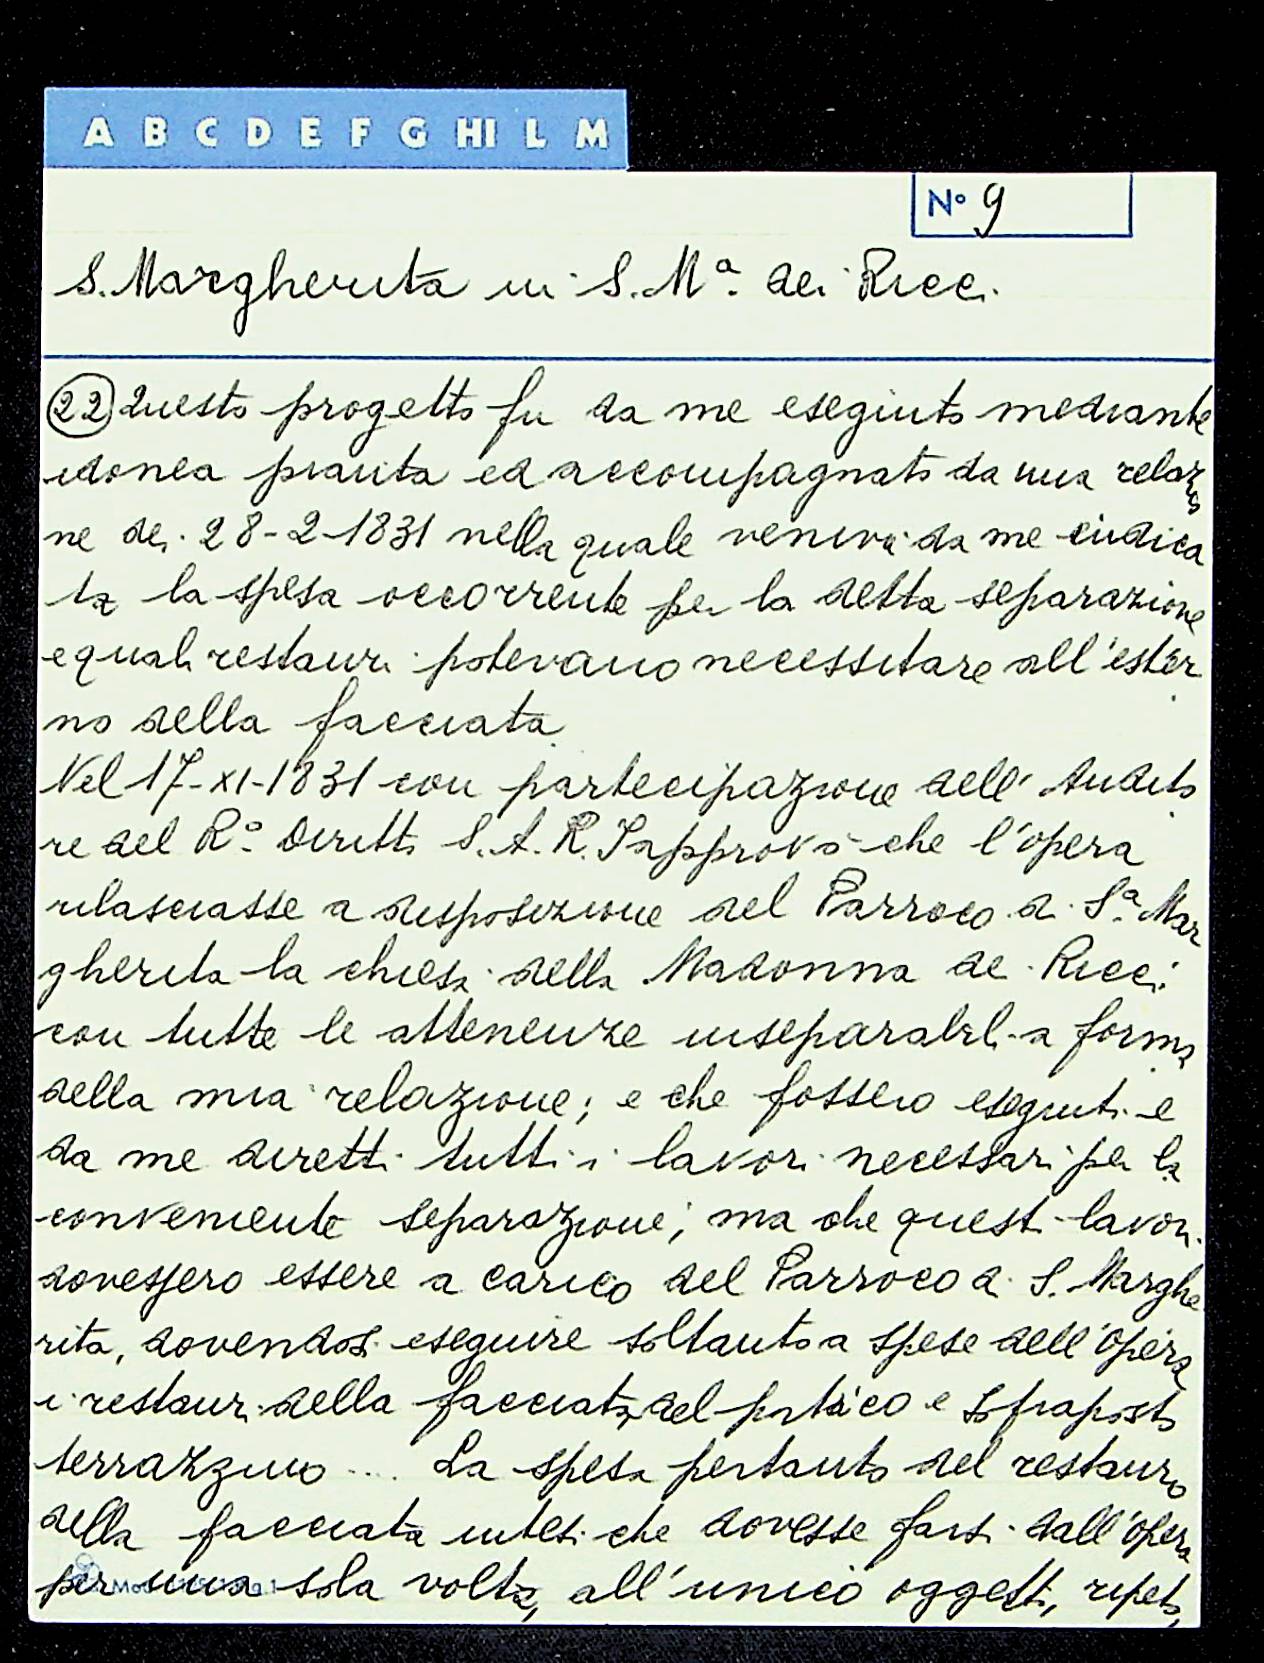 A B C D E F G HI L M
N° 9
S. Margherita in S. Mª. dei Ricci.
22 Questo progetto fu da me eseguito mediante
idonea pianta ed accompagnato da una relazio
ne dei 28-2-1831 nella quale veniva da me indica
ta la spesa occorrente per la detta separazione
e quali restauri potevano necessitare all'ester
no della facciata
Nel 17-XI-1831 con partecipazione dell'Audito
re del R°. Diritti S. A. R. I approvò che l'opera
rilasciasse a disposizione del Parroco di Sª. Mar
gherita la chiesa della Madonna de Ricci
con tutte le attenenze inseparabili a forma
della mia relazione; e che fossero eseguiti e
da me diretti tutti i lavori necessari per la
conveniente separazione; ma che questi lavori
dovessero essere a carico del Parroco di S. Marghe
rita, dovendosi eseguire soltanto a spese dell'opera
i restauri della facciata, del portico e sofraposto
terrazzino .... La spesa pertanto del restauro
della facciata intesi che dovesse farsi dall'opera
per una sola volta, all'unico oggetto, ripeto,